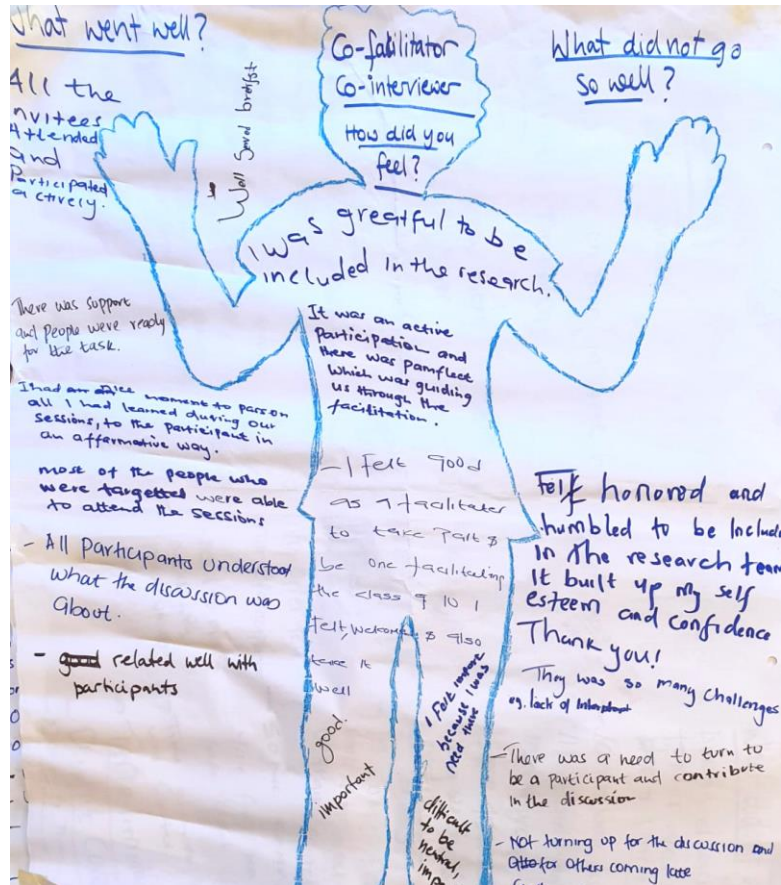 What went well?
All the
invitees
Attended
and
Participated
actively.
Well Saved
There was support
and people were ready
for the task.
I had an nice moment to pass on
all I had learned during our
sessions, to the participant in
an affarmative way.
most of the people who
were targetted were able
to attend the sessions
- All Participants understood
what the discussion was
About.
- related well with
participants
Co-facilitator
Co-interviewer
How did you
feel?
I was greatful to be
included in the research.
It was an active
Participation and
there was pamflect
which was guiding
us through the
facilitation.
- I Felt good
as a facilitater
to take Part &
be one facilitating
the class of 10 I
Felt, Welcome & also
take it
Well
good.
important
I Felt
because I was
need there
difficult
to be
neutral,
What did not go
so well?
Felt honored and
humbled to be Includ
In the research team
It built up my self
esteem and confidence
Thank you!
They was so many challenges
eg. lack of
- There was a need to turn to
be a participant and contribute
in the discussion
- Not turning up for the discussion and
for others coming late